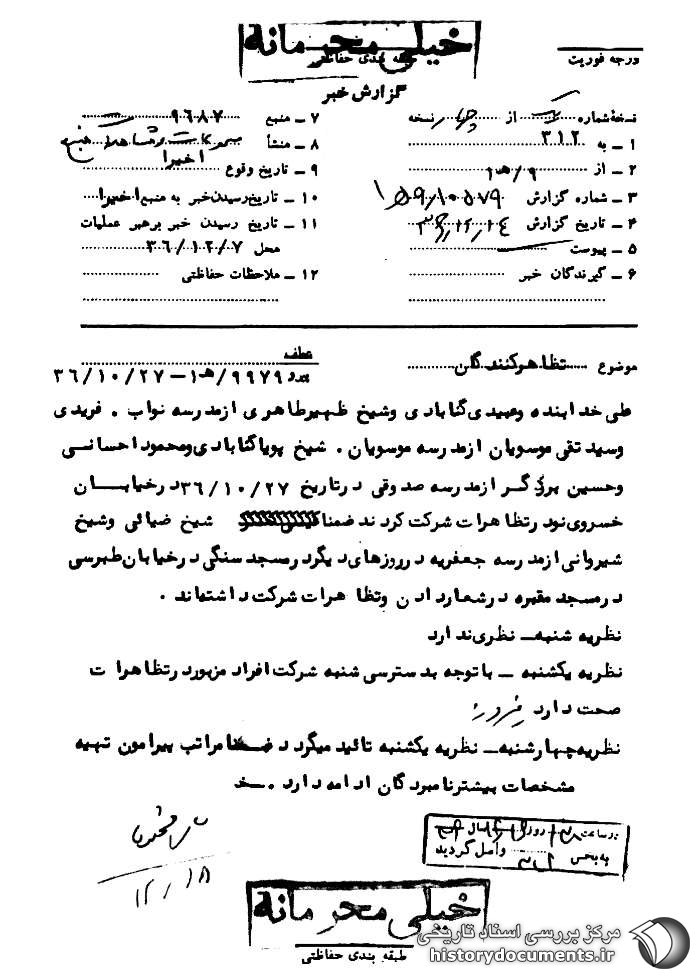 خیلی محرمانه
طبقه بندی حفاظتی
درجه فوریت
گزارش خبر
نسخهٔ شماره از چهار نسخه
۱ – به ۳۱۲
۲ – از ۹/هـ۱
۳ – شماره گزارش
۴ – تاریخ گزارش
۵ – پیوست
۶ – گیرندگان خبر
۷ – منبع ۹۶۸۷
۸ – منشأ
۹ – تاریخ وقوع اخیرا
۱۰ – تاریخ رسیدن خبر به منبع اخیرا
۱۱ – تاریخ رسیدن خبر برهبر عملیات
محل ۳۶/۱۲/۷
۱۲ – ملاحظات حفاظتی
موضوع تظاهرکنندگان
عطف
۹۹۷۹/هـ۱–۳۶/۱۰/۲۷
علی خدابنده وعبیدی گنابادی وشیخ ظهیرطاهری ازمدرسه نواب . فریدی
وسیدتقی موسویان ازمدرسه موسویان . شیخ پویاگنابادی ومحموداحسانی
وحسین برزگر ازمدرسه صدوقی درتاریخ ۳۶/۱۰/۲۷ درخیابان
خسروی نودرتظاهرات شرکت کردند ضمنا شیخ ضیائی وشیخ
شیروانی ازمدرسه جعفریه درروزهای دیگردرمسجدسنگی درخیابان طبرسی
درمسجد مقبره درشعاردادن وتظاهرات شرکت داشته‌اند .
نظریه شنبه– نظری ندارد
نظریه یکشنبه – باتوجه بدسترسی شنبه شرکت افراد مزبوردرتظاهرات
صحت دارد
نظریه چهارشنبه– نظریه یکشنبه تائید میگردد ضمنا مراتب پیرامون تهیه
مشخصات بیشترنامبردگان ادامه دارد .
درساعت روز سال
به بخش واصل گردید
۱۲/۱۸
خیلی محرمانه
طبقه بندی حفاظتی
مرکز بررسی اسناد تاریخی
historydocuments.ir